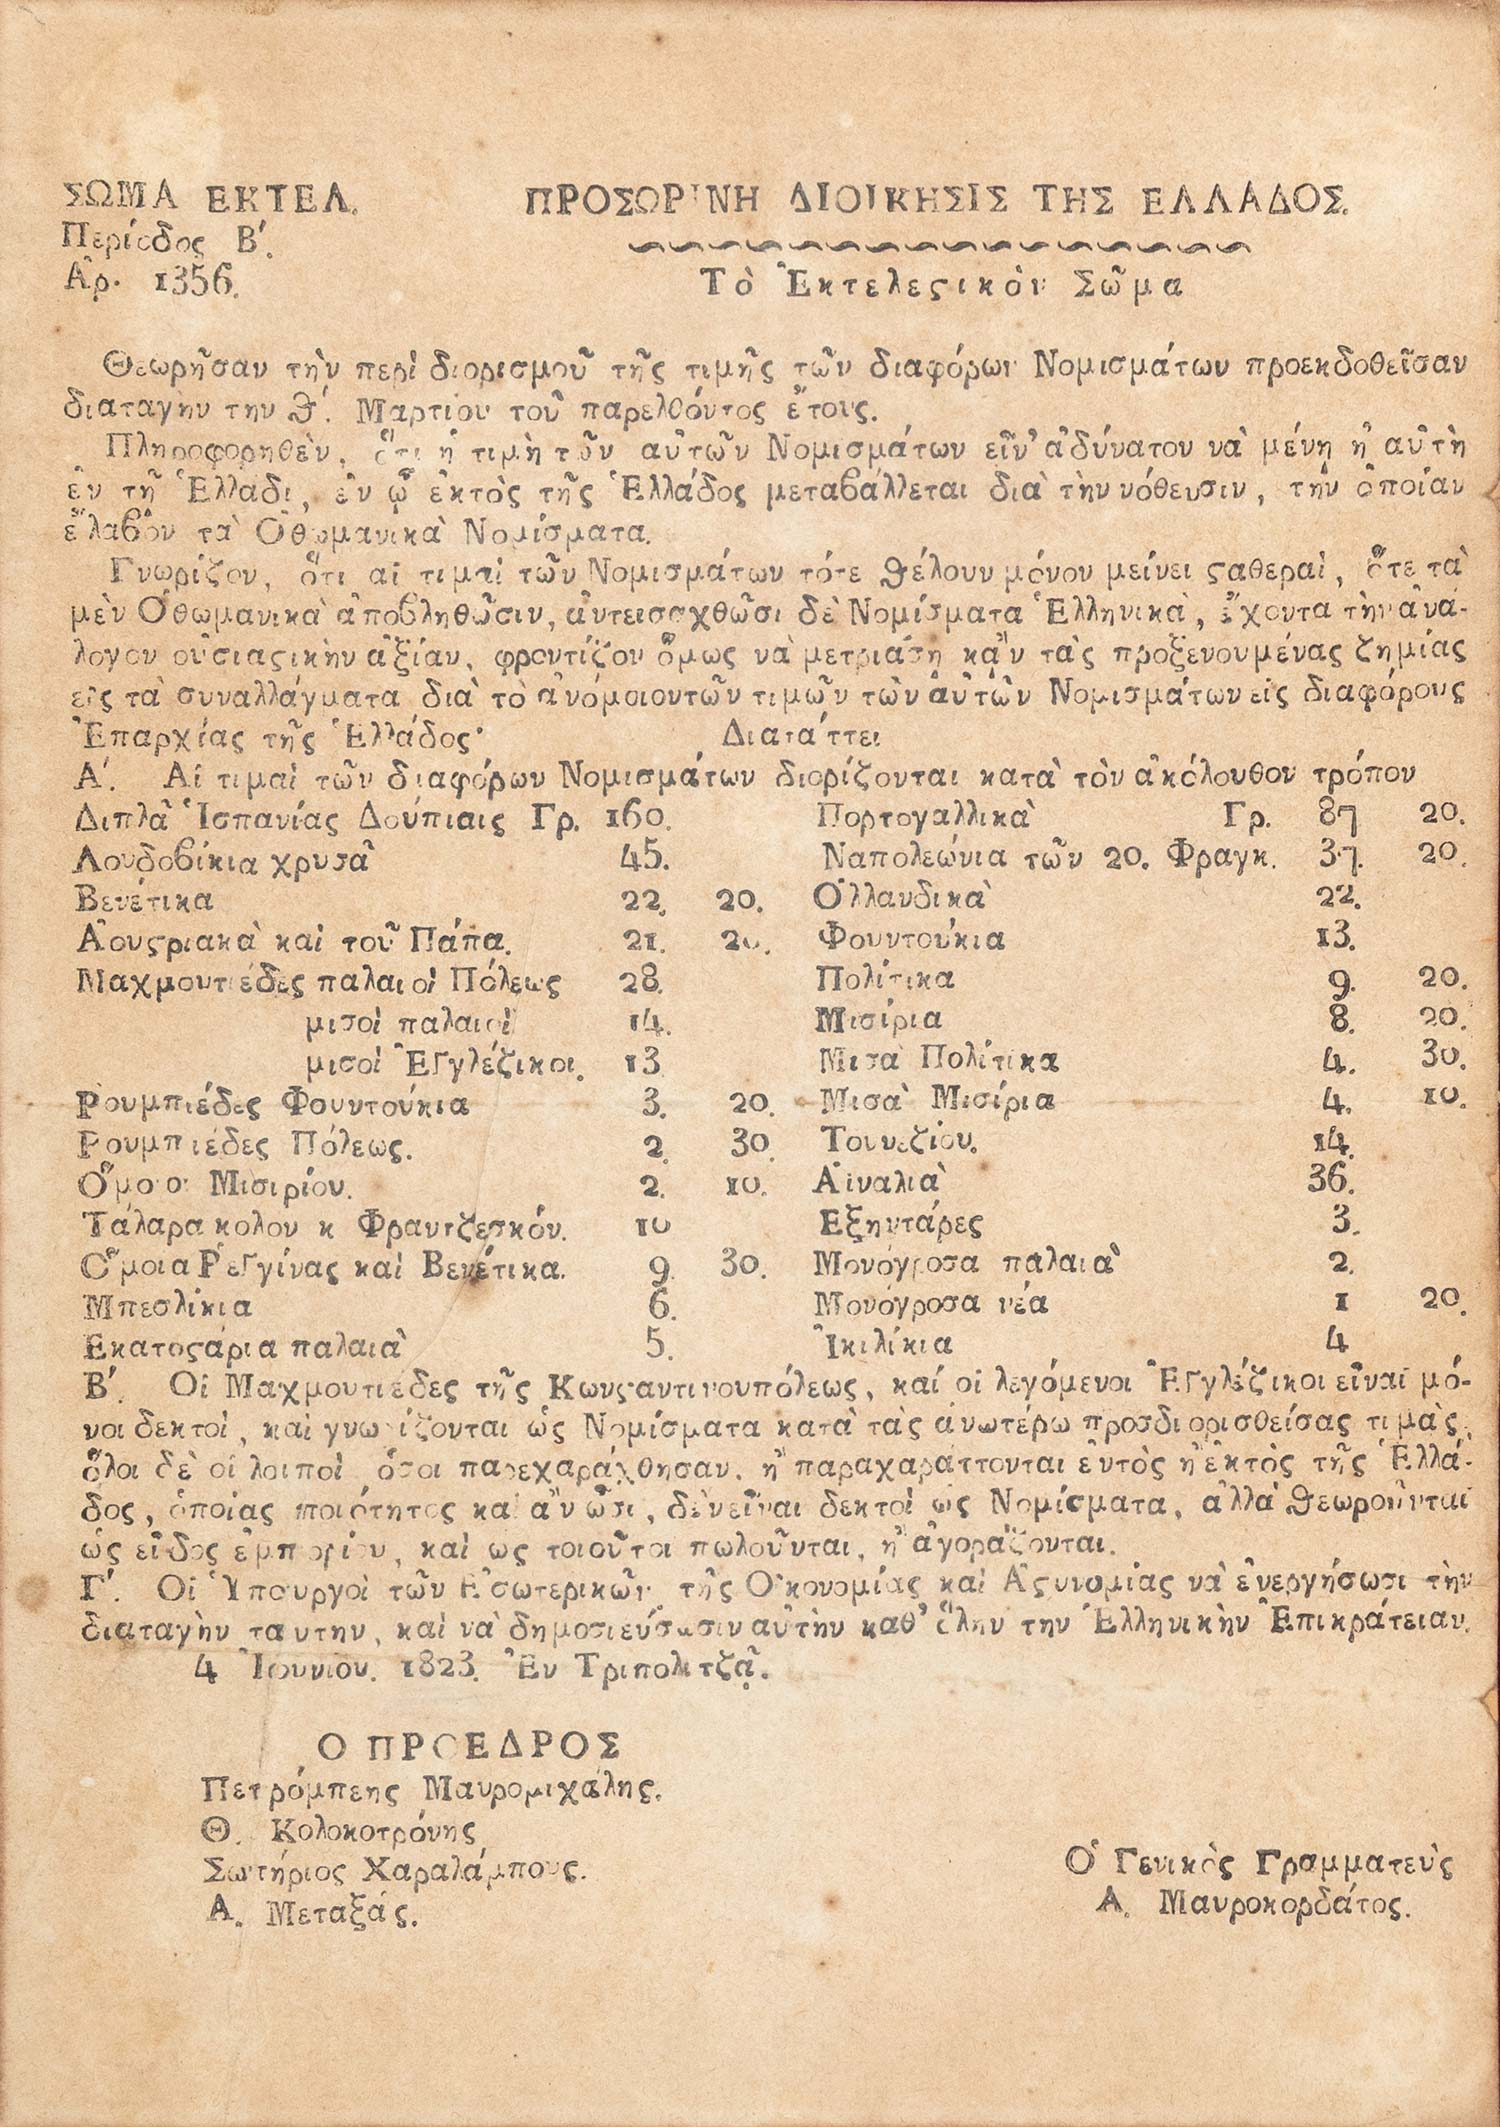 ΣΩΜΑ ΕΚΤΕΛ.
Περίοδος Β΄.
Ἀρ. 1356.
ΠΡΟΣΩΡΙΝΗ ΔΙΟΙΚΗΣΙΣ ΤΗΣ ΕΛΛΑΔΟΣ.
Τὸ Ἐκτελεςικὸν Σῶμα
Θεωρῆσαν τὴν περὶ διορισμοῦ τῆς τιμῆς τῶν διαφόρων Νομισμάτων προεκδοθεῖσαν
διαταγην την θ΄. Μαρτίου τοῦ παρελθόντος ἔτους.
Πληροφορηθὲν, ὅτι ἡ τιμὴ τῶν αὐτῶν Νομισμάτων εἶν' ἀδύνατον νὰ μένῃ ἡ αὐτὴ
ἐν τῇ Ἑλλάδι, ἐν ᾧ ἐκτὸς τῆς Ἑλλάδος μεταβάλλεται διὰ τὴν νόθευσιν, τὴν ὁποίαν
ἔλαβον τὰ Ὀθωμανικὰ Νομίσματα.
Γνωρίζον, ὅτι αἱ τιμαὶ τῶν Νομισμάτων τότε θέλουν μόνον μείνει ςαθεραὶ, ὅτε τὰ
μὲν Ὀθωμανικὰ ἀποβληθῶσιν, ἀντεισαχθῶσι δὲ Νομίσματα Ἑλληνικὰ, ἔχοντα τὴν ἀνά-
λογον οὐσιαςικὴν ἀξίαν, φροντίζον ὅμως νὰ μετριάσῃ κἂν τὰς προξενουμένας ζημίας
εἰς τὰ συναλλάγματα διὰ τὸ ἀνόμοιον τῶν τιμῶν τῶν αὐτῶν Νομισμάτων εἰς διαφόρους
Ἐπαρχίας τῆς Ἑλλάδος· Διατάττει
Α΄. Αἱ τιμαὶ τῶν διαφόρων Νομισμάτων διορίζονται κατὰ τὸν ἀκόλουθον τρόπον
Διπλᾶ Ἱσπανίας Δούπιαις Γρ. 160. Πορτογαλλικὰ Γρ. 87 20.
Λουδοβίκια χρυσᾶ 45. Ναπολεώνια τῶν 20. Φραγκ. 37. 20.
Βενέτικα 22. 20. Ὁλλανδικὰ 22.
Ἀουςριακὰ καὶ τοῦ Πάπα. 21. 20. Φουντούκια 13.
Μαχμουτιέδες παλαιοὶ Πόλεως 28. Πολίτικα 9. 20.
μισοὶ παλαιοὶ 14. Μισίρια 8. 20.
μισοὶ Ἐγγλέζικοι. 13 Μισὰ Πολίτικα 4. 30.
Ρουμπιέδες Φουντούκια 3. 20. Μισὰ Μισίρια 4. 10.
Ρουμπιέδες Πόλεως. 2. 30. Τουνεζίου. 14.
Ὅμοιοι Μισιρίου. 2. 10. Ἀϊναλιὰ 36.
Τάλαρα κολον κ Φραντζεσκόν. 10 Εξηντάρες 3.
Ὅμοια Ῥεγγίνας καὶ Βενέτικα. 9. 30. Μονόγροσα παλαιὰ 2.
Μπεσλίκια 6. Μονόγροσα νέα 1 20.
Εκατοςάρια παλαιὰ 5. Ἰκιλίκια 4
Β΄. Οἱ Μαχμουτιέδες τῆς Κωνςαντινουπόλεως, καί οἱ λεγόμενοι Ἐγγλέζικοι εἶναι μό-
νοι δεκτοὶ, καὶ γνωρίζονται ὡς Νομίσματα κατὰ τὰς ἀνωτέρω προσδιορισθείσας τιμὰς,
ὅλοι δὲ οἱ λοιποὶ ὅσοι παρεχαράχθησαν, ἢ παραχαράττονται ἐντὸς ἢ ἐκτὸς τῆς Ἑλλά-
δος, ὁποίας ποιότητος καὶ ἂν ὦσι, δὲν εἶναι δεκτοὶ ὡς Νομίσματα, ἀλλὰ θεωροῦνται
ὡς εἶδος ἐμπορίου, καὶ ως τοιοῦτοι πωλοῦνται, ἢ ἀγοράζονται.
Γ΄. Οἱ Ὑπουργοὶ τῶν Ἐσωτερικῶν, τῆς Οἰκονομίας καὶ Ἀςυνομίας νὰ ἐνεργήσωσι τὴν
διαταγὴν ταυτην, καὶ νὰ δημοσιεύσωσιν αὐτὴν καθ' ὅλην την Ἑλληνικὴν Ἐπικράτειαν.
4 Ἰουνίου. 1823. Ἐν Τριπολιτζᾷ.
Ο ΠΡΟΕΔΡΟΣ
Πετρόμπεης Μαυρομιχάλης.
Θ. Κολοκοτρόνης
Σωτήριος Χαραλάμπους.
Α. Μεταξάς.
Ὁ Γενικὸς Γραμματεὺς
Α. Μαυροκορδάτος.